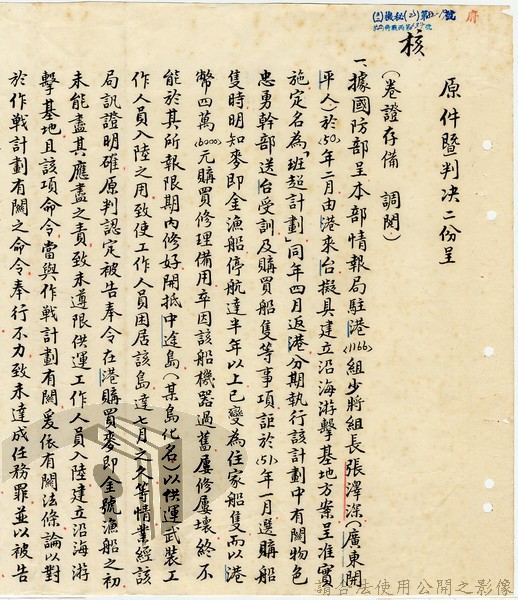 核
原件暨判决二份呈
(卷證存備 調閱)
一、據國防部呈本部情報局駐港(1166)組少將組長張澤深(廣東開
平人)於(50)年二月由港來台擬具建立沿海游擊基地方案呈准實
施定名為「班超計劃」同年四月返港分期執行該計劃中有關物色
忠勇幹部送台受訓及購買船隻等事項詎於(51)年一月選購船
隻時明知麥即金漁船停航達半年以上已變為住家船隻而以港
幣四萬(6000)元購買修理備用卒因該船機器過舊屢修屢壞終不
能於其所報限期內修好開抵中途島(某島化名)以供運武裝工
作人員入陸之用致使工作人員困居該島達七月之久等情業經該
局訊證明確原判認定被告奉令在港購買麥即金號漁船之初
未能盡其應盡之責致未遵限供運工作人員入陸建立沿海游
擊基地且該項命令當與作戰計劃有關爰依有關法條論以對
於作戰計劃有關之命令奉行不力致未達成任務罪並以被告
請合法使用公開之影像